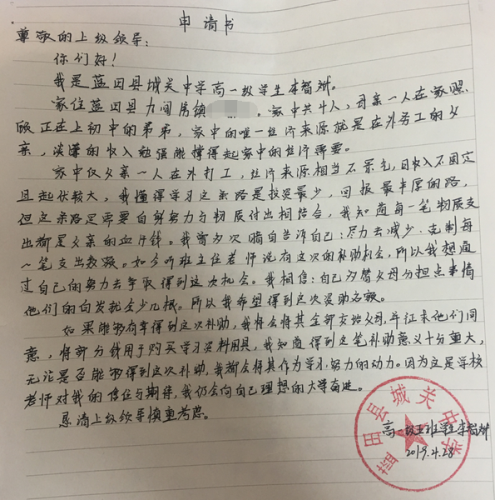 申请书
尊敬的上级领导：
你们好！
我是蓝田县城关中学高一级学生李智
家住蓝田县九间房镇 。家中共4人，母亲一人在家照
顾正在上初中的弟弟，家中的唯一经济来源就是在外务工的父
亲，淡薄的收入勉强能撑得起家中的经济需要。
家中仅父亲一人在外打工，经济来源相当不景气，日收入不固定
且起伏较大，我懂得学习这条路是投资最少，回报最丰厚的路，
但这条路定需要自身努力与物质付出相结合，我知道每一笔物质支
出都是父亲的血汗钱。我曾多次暗自告诉自己：尽力去减少、克制每
一笔支出数额。如今听班主任老师说有这次的补助机会，所以我想通
过自己的努力去争取得到这次机会。我相信：自己为替父母分担点事情
他们的白发就会少几根。所以我希望得到这次资助名额。
如果能够有幸得到这次补助，我将会将其全部交给父母，并征求他们同
意，将部分钱用于购买学习资料用具，我知道得到这笔补助意义十分重大，
无论是否能够得到这次补助，我都会将其作为学习、努力的动力。因为这是学校
老师对我的信任与期待，我仍会向自己理想的大学奋进。
恳请上级领导慎重考虑。
高一级 班 李智
2019.4.28
蓝田县城关中学